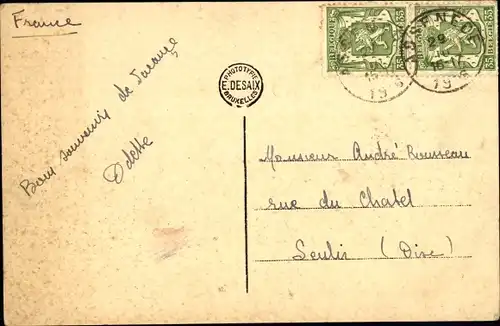 France
BELGIQUE 35 BELGIE
BELGIQUE 35 BELGIE
ASSENEDE
19
PHOTOTYPIE
E. DESAIX
BRUXELLES
Bons souvenirs de
Odette
Monsieur André Rousseau
rue du Chatel
Senlis (Oise)